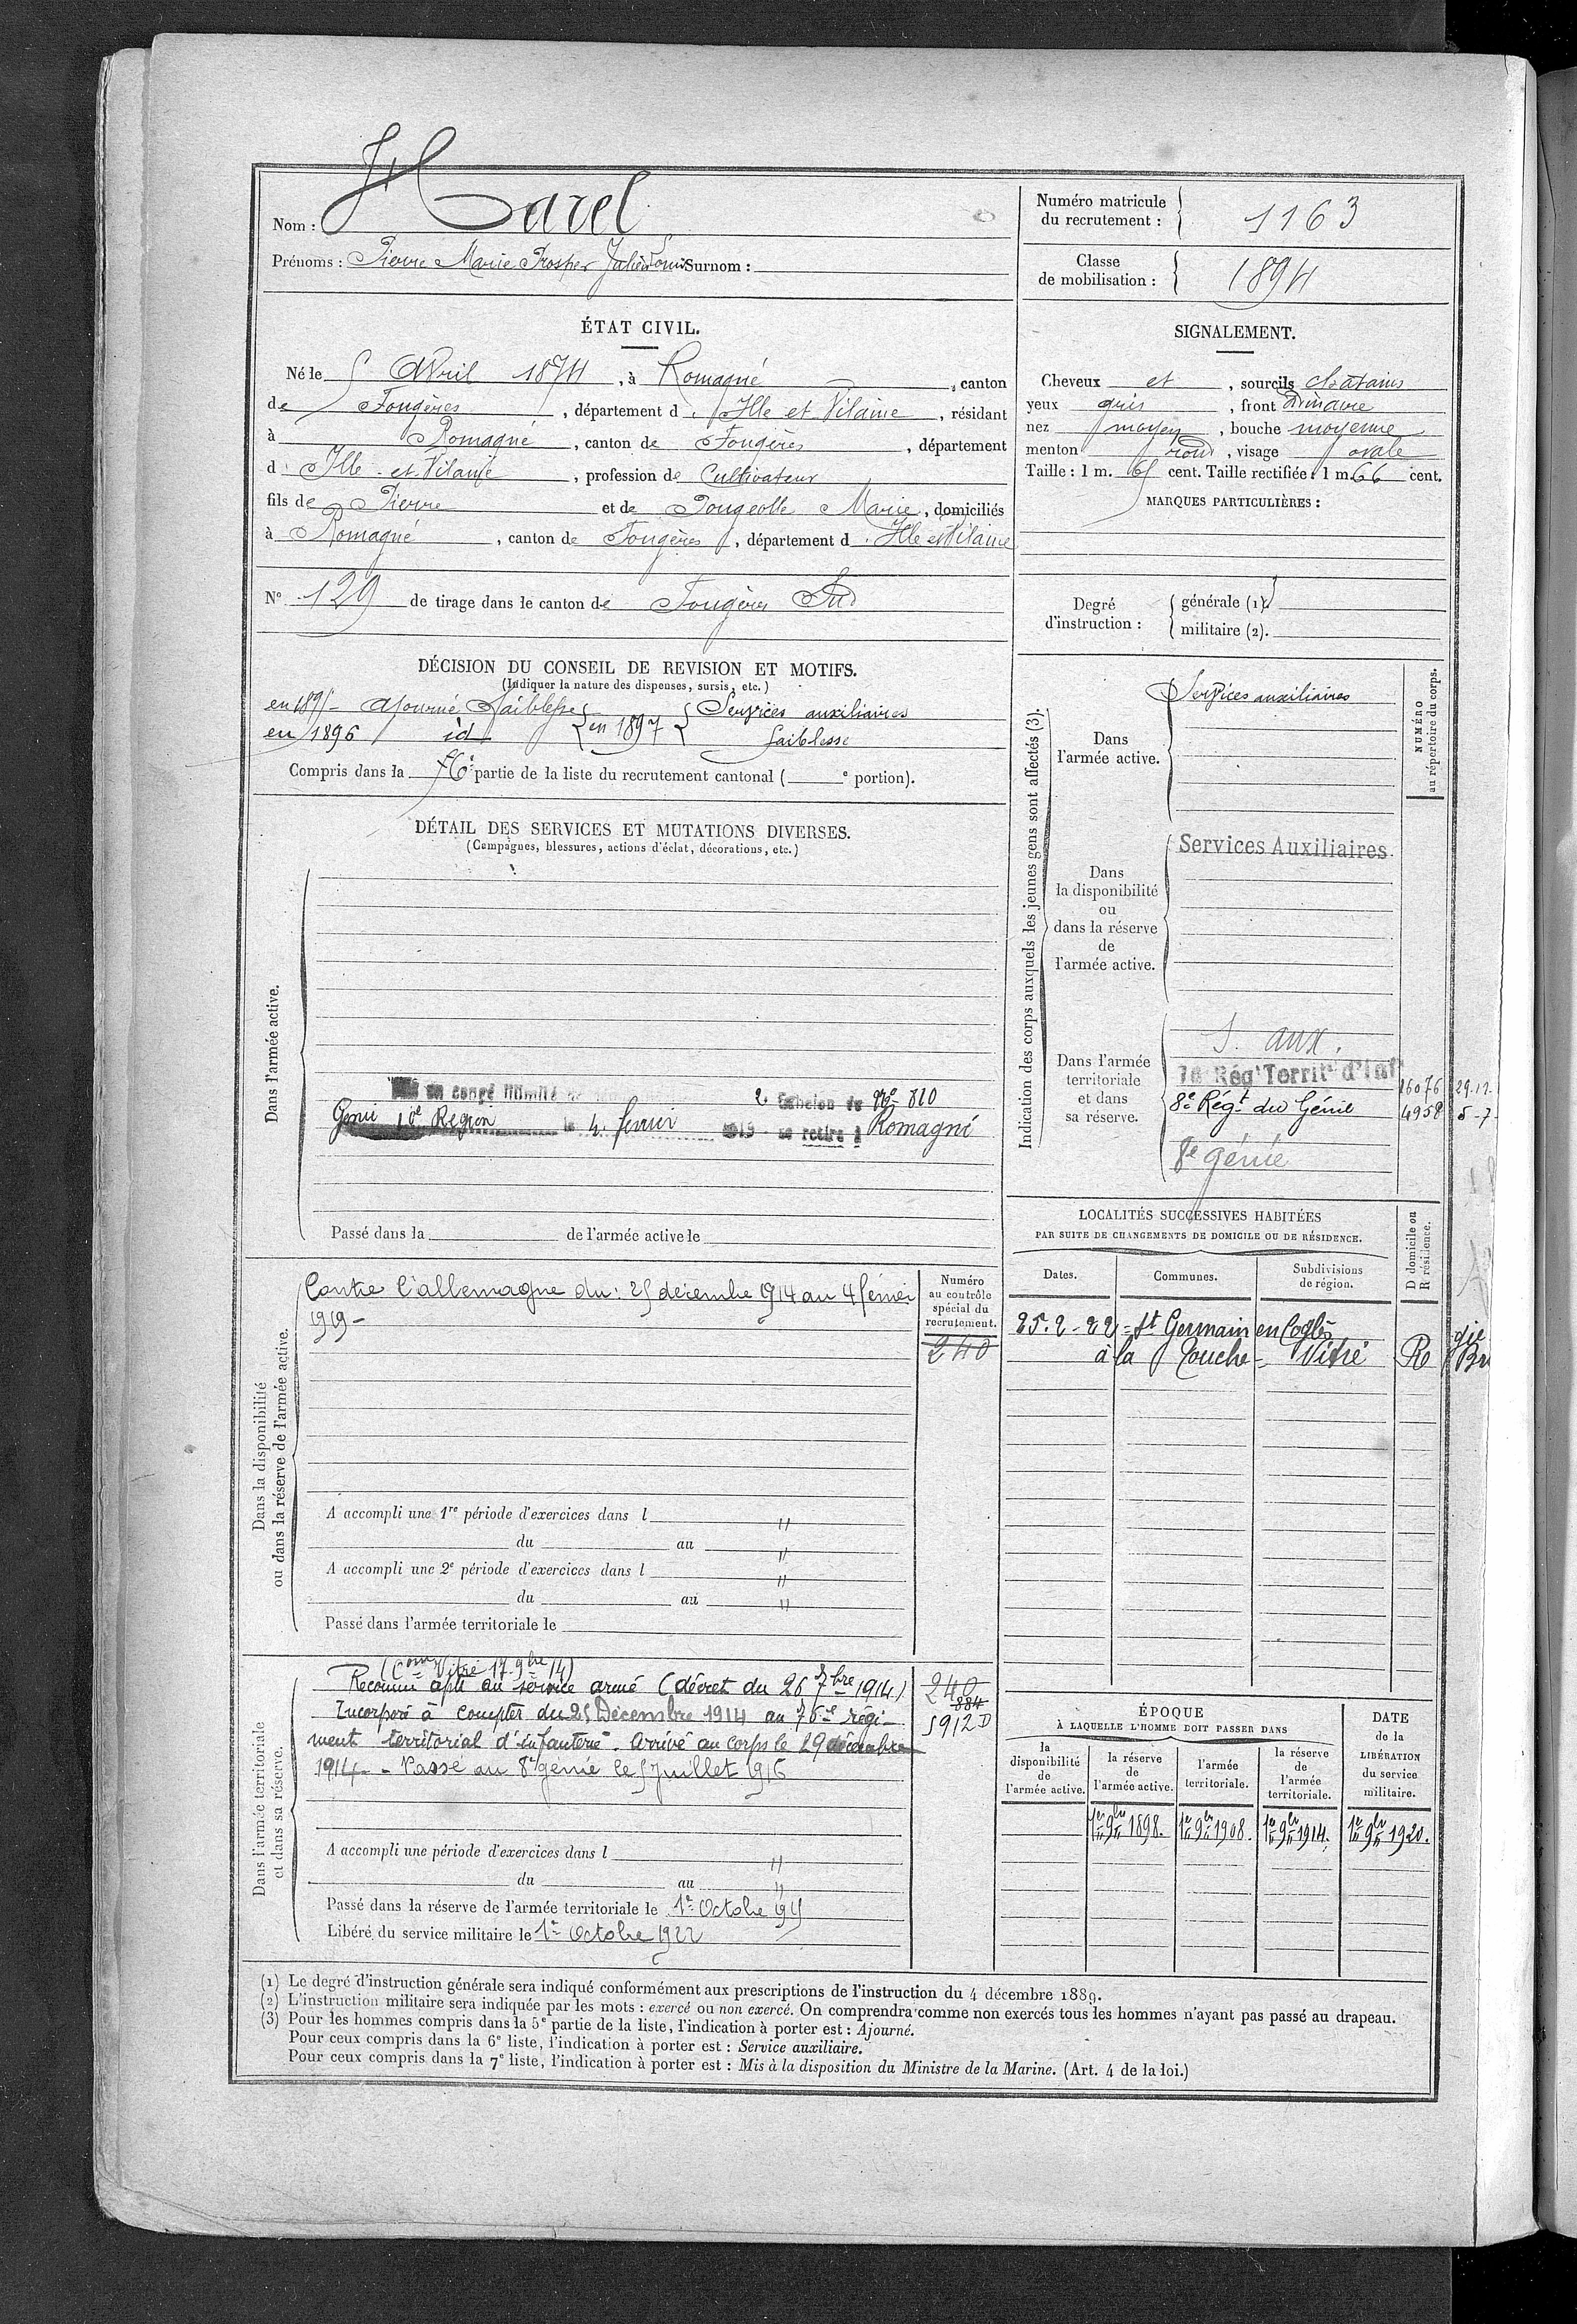 Nom : Harel
Prénoms : Pierre Marie Prosper Julien Louis Surnom :
Numéro matricule
du recrutement : 1163
Classe
de mobilisation : 1894
ÉTAT CIVIL.
Né le 5 Avril 1874, à Romagné, canton
de Fougères, département d. Ille et Vilaine, résidant
à Romagné, canton de Fougères, département
d. Ille-et-Vilaine, profession de Cultivateur
fils de Pierre et de Pougeolle Marie, domiciliés
à Romagné, canton de Fougères, département d. Ille et Vilaine
N° 129 de tirage dans le canton de Fougères Sud
SIGNALEMENT.
Cheveux et, sourcils chatains
yeux gris, front ordinaire
nez moyen, bouche moyenne
menton rond, visage ovale
Taille : 1 m. 65 cent. Taille rectifiée : 1 m. 66 cent.
MARQUES PARTICULIÈRES :
Degré
d'instruction :
générale (1).
militaire (2).
DÉCISION DU CONSEIL DE REVISION ET MOTIFS.
(Indiquer la nature des dispenses, sursis, etc.)
en 1895 - Ajourné Faiblesse { en 1897 { Services auxiliaires
en 1896 id faiblesse
Compris dans la 6e partie de la liste du recrutement cantonal ( e portion).
DÉTAIL DES SERVICES ET MUTATIONS DIVERSES.
(Campagnes, blessures, actions d'éclat, décorations, etc.)
Dans l'armée active.
en congé illimité 2e Echelon du No 810
Génie 10e Région le 4 février 1919 se retire à Romagné
Passé dans la de l'armée active le
Indication des corps auxquels les jeunes gens sont affectés (3).
NUMÉRO
au répertoire du corps.
Dans
l'armée active.
Services auxiliaires
Dans
la disponibilité
ou
dans la réserve
de
l'armée active.
Services Auxiliaires
Dans l'armée
territoriale
et dans
sa réserve.
S. aux.
76e Régt Territal d'Inf 16076 29.12.
8e Régt du Génie 4958 5-7-
8e génie
LOCALITÉS SUCCESSIVES HABITÉES
PAR SUITE DE CHANGEMENTS DE DOMICILE OU DE RÉSIDENCE.
Dates.
Communes.
Subdivisions
de région.
D domicile ou
R résidence.
25.2-22 = St Germain en Coglès
à la Touche = Vitré R
Dans la disponibilité
ou dans la réserve de l'armée active.
Contre l'allemagne du : 25 décembre 1914 au 4 février
1919 -
Numéro
au contrôle
spécial du
recrutement.
240
A accompli une 1re période d'exercices dans l "
du au "
A accompli une 2e période d'exercices dans l "
du au "
Passé dans l'armée territoriale le
Dans l'armée territoriale
et dans sa réserve.
(Com Vitré 17-9bre 14)
Reconnu apte au service armé (décret du 26 7bre 1914)
Incorporé à compter du 25 Décembre 1914 au 76e régi-
ment territorial d'infanterie. Arrivé au corps le 29 décembre
1914 - Passé au 8e génie le 5 Juillet 1916
240
884
5912 D
A accompli une période d'exercices dans l "
du au "
Passé dans la réserve de l'armée territoriale le 1er Octobre 1915
Libéré du service militaire le 1er Octobre 1922
ÉPOQUE
À LAQUELLE L'HOMME DOIT PASSER DANS
DATE
de la
LIBÉRATION
du service
militaire.
la
disponibilité
de
l'armée active.
la réserve
de
l'armée active.
l'armée
territoriale.
la réserve
de
l'armée
territoriale.
1er 9bre 1898. 1er 9bre 1908. 1er 9bre 1914. 1er 9bre 1920.
(1) Le degré d'instruction générale sera indiqué conformément aux prescriptions de l'instruction du 4 décembre 1889.
(2) L'instruction militaire sera indiquée par les mots : exercé ou non exercé. On comprendra comme non exercés tous les hommes n'ayant pas passé au drapeau.
(3) Pour les hommes compris dans la 5e partie de la liste, l'indication à porter est : Ajourné.
Pour ceux compris dans la 6e liste, l'indication à porter est : Service auxiliaire.
Pour ceux compris dans la 7e liste, l'indication à porter est : Mis à la disposition du Ministre de la Marine. (Art. 4 de la loi.)